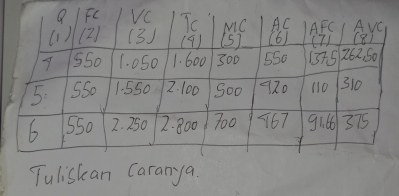 Q FC VC TC MC AC AFC AVC
(1) (2) (3) (4) (5) (6) (7) (8)
4 550 1.050 1.600 300 550 137,5 262.50
5 550 1.550 2.100 500 420 110 310
6 550 2.250 2.800 700 467 91,66 375
Tuliskan Caranya.